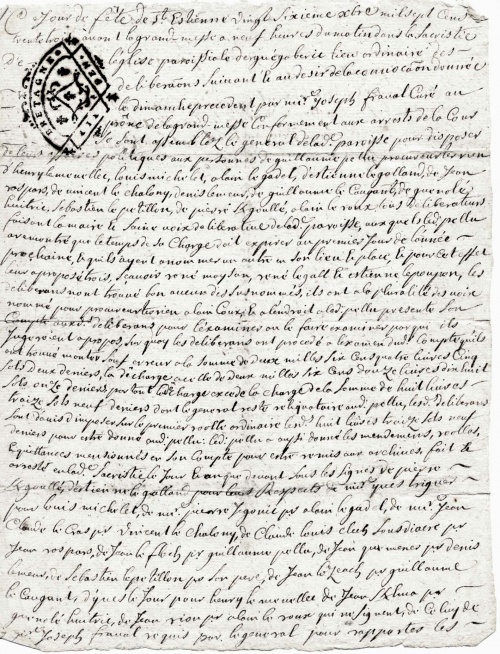 Ce Jour de fête de st Estienne vingt sixieme xbre mil sept Cens
trente trois avant la grand messe a neuf heures du matin dans la sacristie
de l'eglise paroissiale derguegaberic lieu ordinaire des
deliberãons suivant et au desir de la connocãon donnée
le dimanche precedent par mre Joseph fraual Curé au
prône de la grand messe Conformement aux arrests de la Cour
se sont assemblez le general de lade paroisse pour disposer
de leurs affaires politiques aux personnes de guillaume pellu procureur terrien
d'henry le meuellec, louis michelet, alain le gadel, destienne le gallou, de Jean
rospars, de vincent le chalony, denis lemeur, de guillaume le Caugant, de guenolé
huitric, Sebastien le petillon, de pierre le goullé, alain le roux tous deliberateurs
faisant la maire et saine voix de liberatiue de lade paroisse, aux quels led. pellu
a remontré que le temps de sa Charge doit expirer au premier Jour de l'année
prochaine, et qu'ils ayent a nommer un autre en son lieu et place, et pour cet effet
leur a proposé trois, scauoir rené moysan, rené le gall et estienne le poupon, les
deliberans n'ont trouué bon aucun des susnommés, ils ont a la pluralité des voix
nommé pour procureur terrien alain Couz, et a l'endroit a led. pellu presenté son
Compte auxd. deliberans pour l'examiner ou le faire examiner par qui ils
Jugeroient a propos, sur quoy les deliberans ont procedé a l'examen dud. Compte, qu'ils
ont trouué monter sauf erreur a la somme de deux milles six cens quatre liures Cinq
sols deux deniers, la décharge a celle de deux milles six Cens douze liures dix huit
sols onze deniers partant la décharge excede la charge de la somme de huit liures
traize sols neuf deniers dont le general reste reliquataire aud. pellu, lesd. deliberans
sont d'auis d'imposer sur le premier roolle ordinaire lesd. huit liures traize sols neuf
deniers pour estre donné aud. pellu; led. pellu a aussi donné les mandements, roolles,
Et quittances mentionnés en son Compte pour estre remis aux archiues, fait et
arresté en lade sacristie le Jour et an que devant sous les signes de pierre
le goullé, d'estienne le gallou pour leurs respects de mre yues triguer
pour louis michelet, de mre pierre Jgouic pr alain le gadel, de mre Jean
Claude le Cras pr vincent le chalony, de Claude louis clech sousdiacre pr
Jean rospars, de Jean le floch pr guillaume pellu, de Jean quemeres pr denis
lemeur, de Sebastien le petillon pr son pere, de Jean le Zeach pr guillaume
le Caugant, d'yues le Jour pour henry le meuellec de Jean pr
guenolé huitric, de Jean riou pr alain le roux qui ne signent, de Celuy de
mre Joseph fraual requis par le general pour rapporter les
BRETAGNE